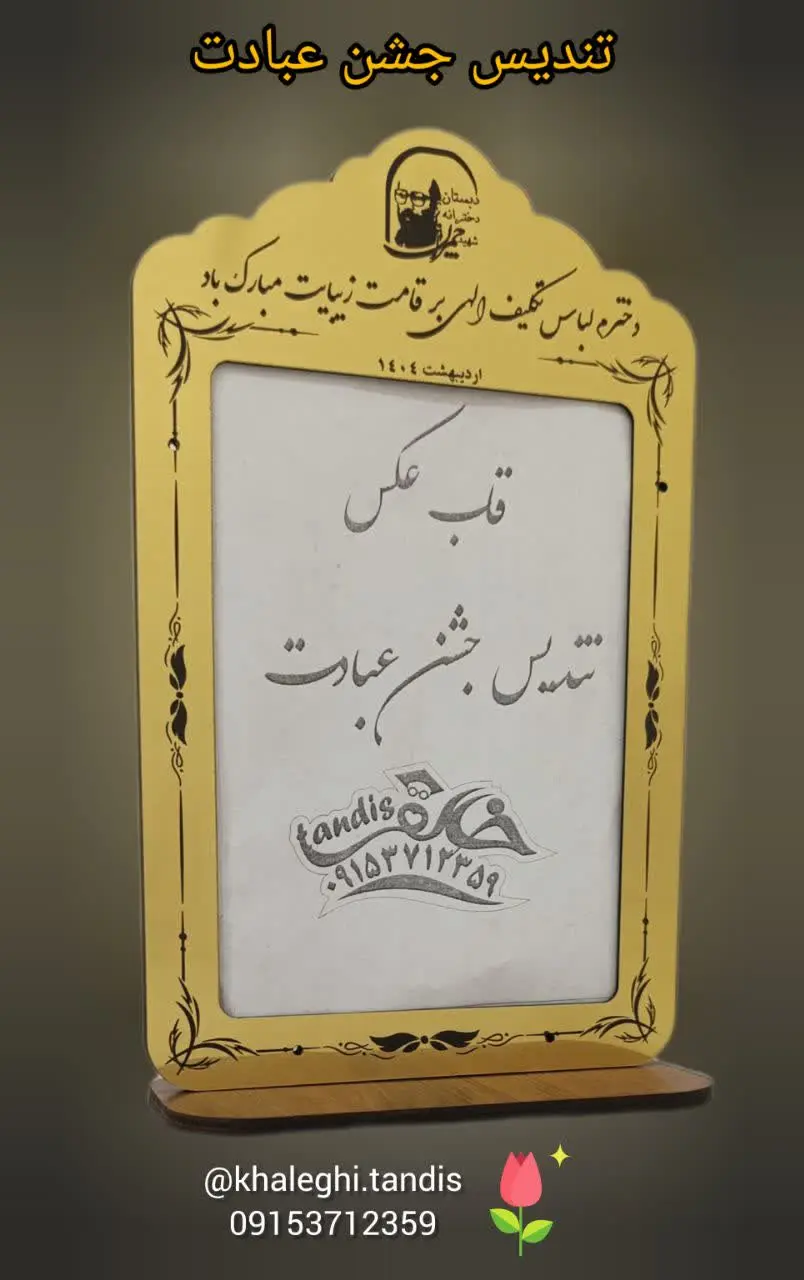 تندیس جشن عبادت
دبستان
دخترانه
شهید
چمران
دخترم لباس تکلیف الهی بر قامت زیبایت مبارک باد
اردیبهشت ۱۴۰۴
قاب عکس
تندیس جشن عبادت
خالقی tandis
۰۹۱۵۳۷۱۲۳۵۹
@khaleghi.tandis
09153712359